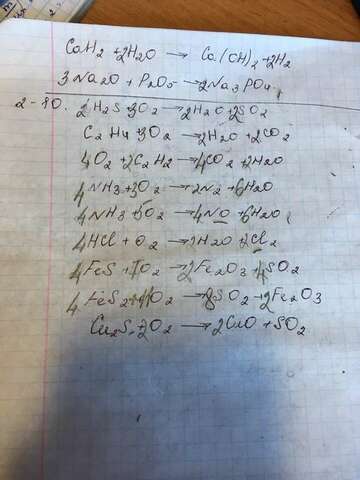 CaH2 + 2H2O → Ca(OH)2 + 2H2
3Na2O + P2O5 → 2Na3PO4
2-80. 2H2S + 3O2 → 2H2O + 2SO2
C2H4 + 3O2 → 2H2O + 2CO2
4O2 + 2C2H2 → 4CO2 + 2H2O
4NH3 + 3O2 → 2N2 + 6H2O
4NH3 + 5O2 → 4NO + 6H2O
4HCl + O2 → 2H2O + 2Cl2
4FeS + 7O2 → 2Fe2O3 + 4SO2
4FeS2 + 11O2 → 8SO2 + 2Fe2O3
Cu2S + 2O2 → 2CuO + SO2